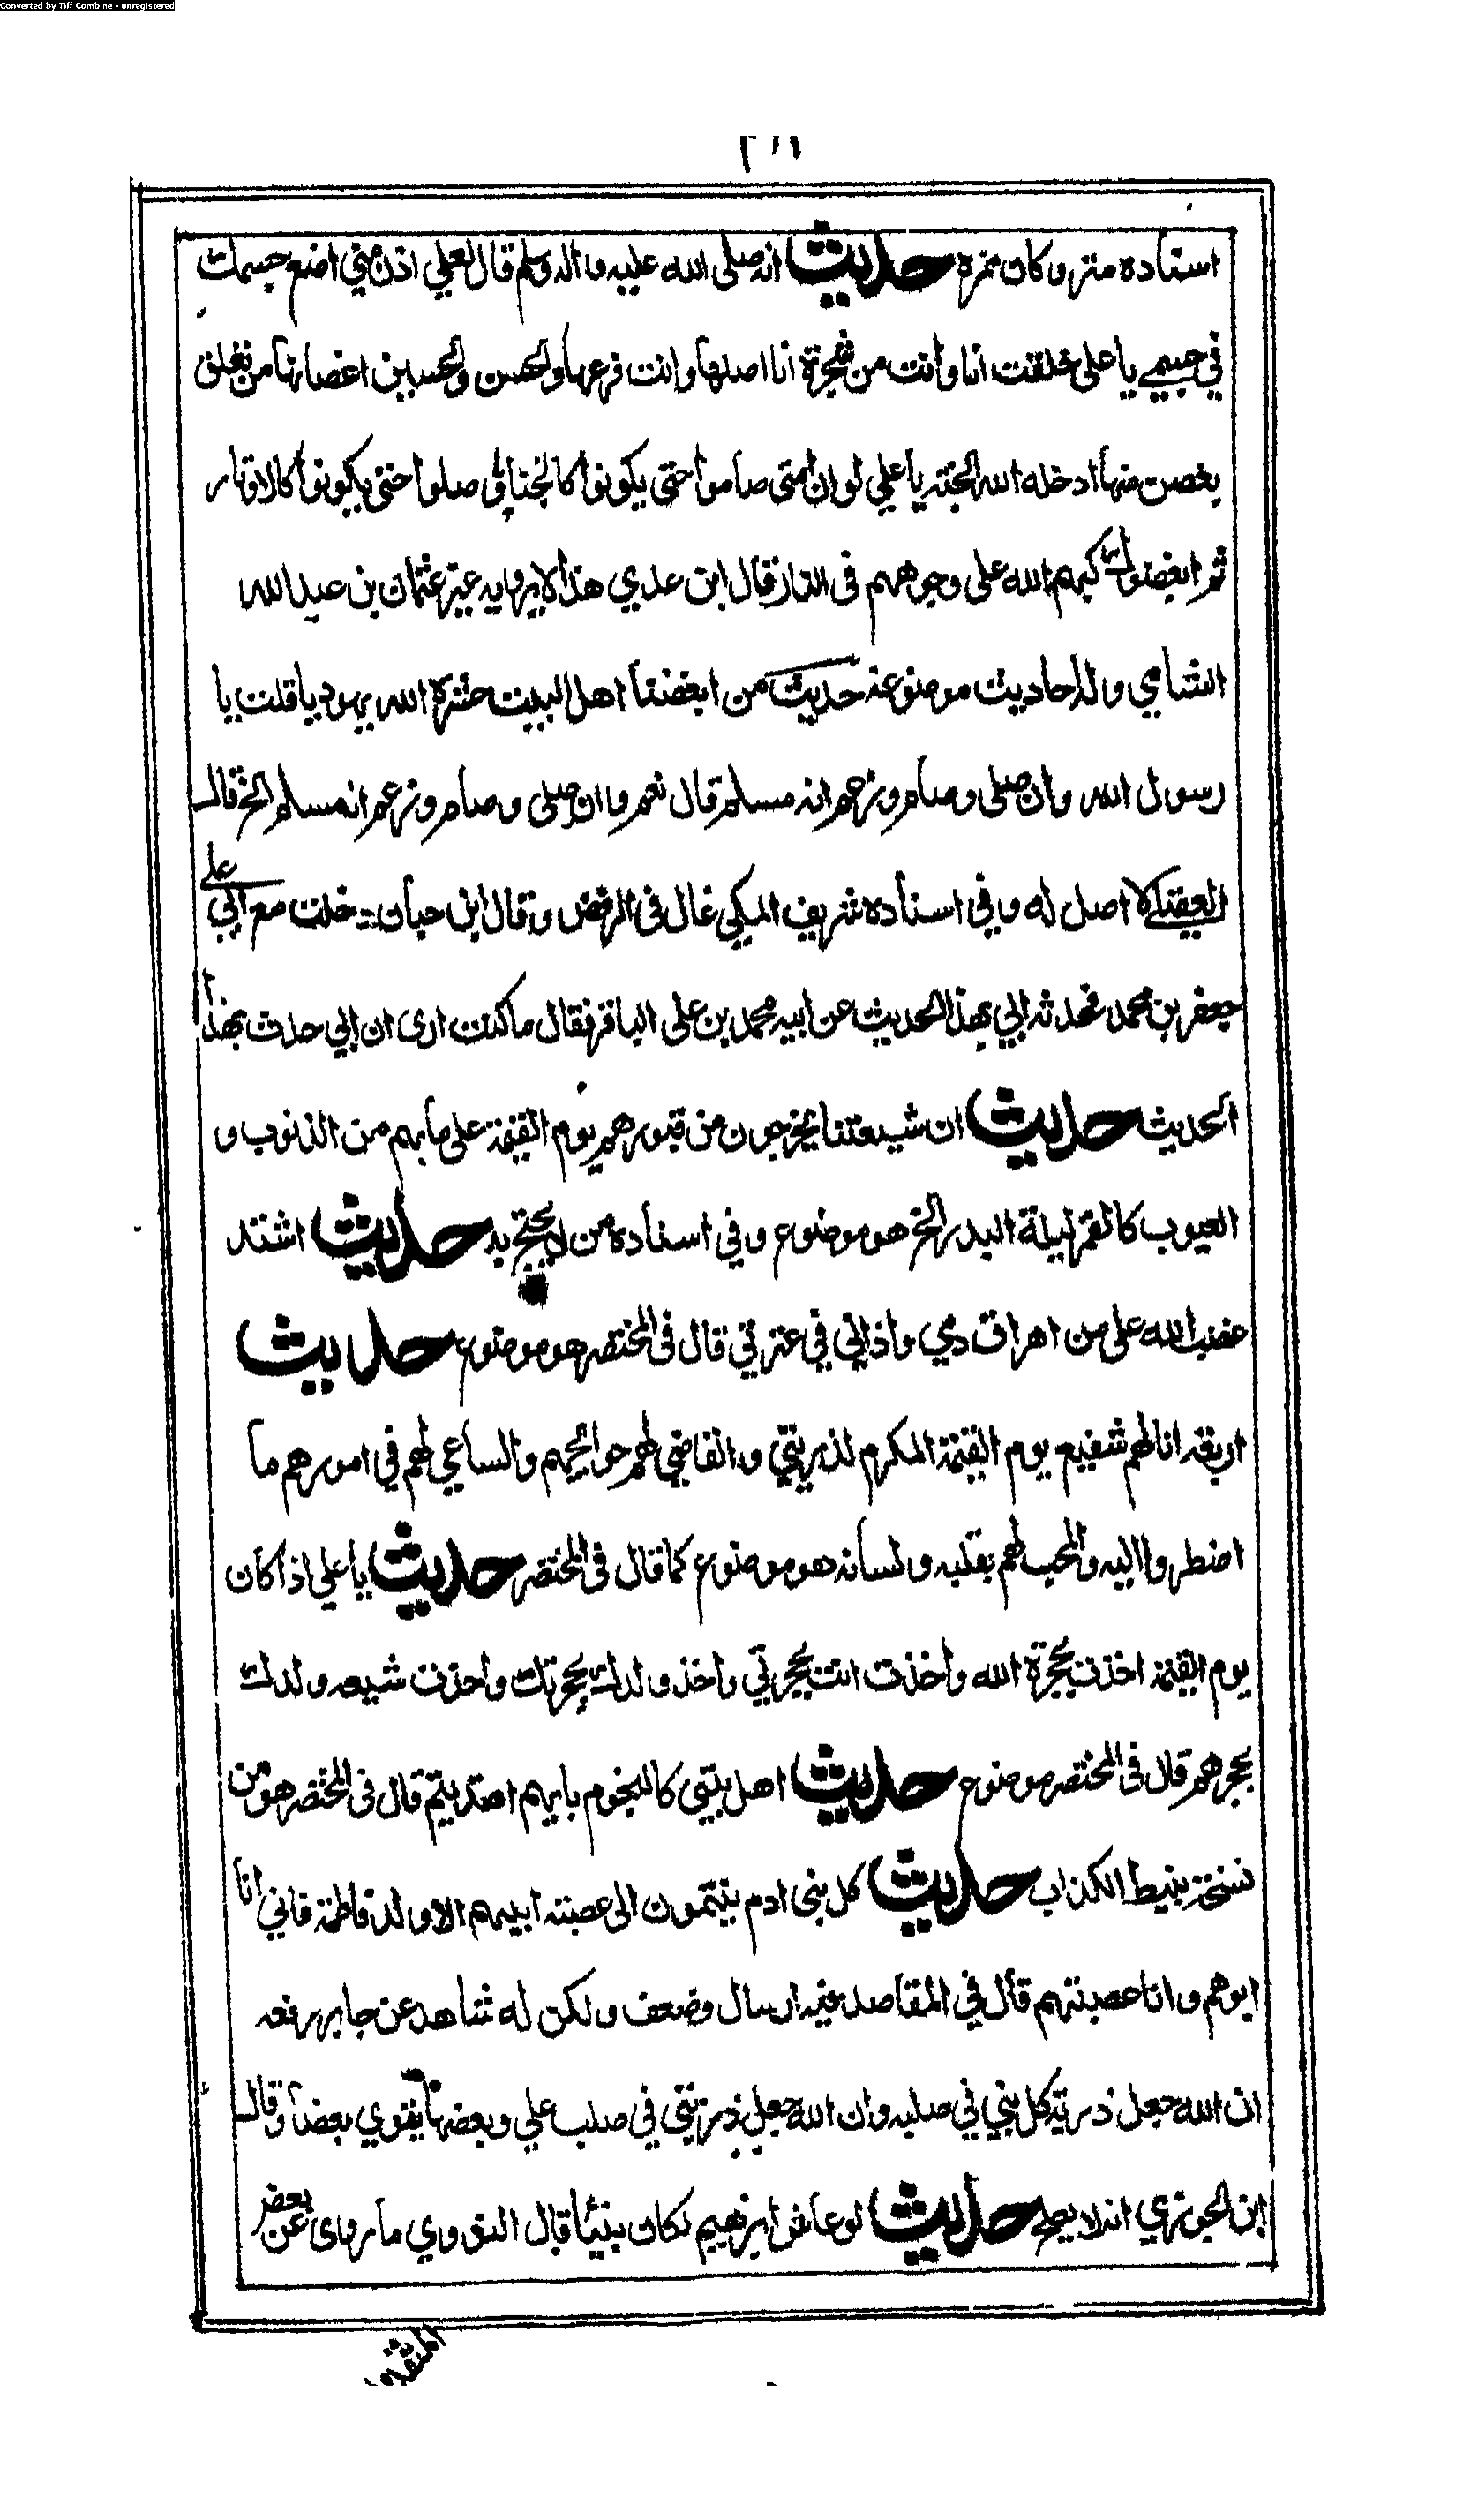 Converted by Tiff Combine - unregistered
اسناده متروكان عمزه حديث انه صلى الله عليه واله وسلم قال لعلي اذن مني اضع جسمك
في جسمي يا علي خلقت انا وانت من شجرة انا اصلها وانت فرعها والحسن والحسين اغصانها من تعلق
بغصن منها ادخله الله الجنة يا علي لو ان امتي صاموا حتى يكونوا كالحنايا وصلوا حتى يكونوا كالاوتار
ثم ابغضوك كبهم الله على وجوههم في النار قال ابن عدي هذا لا يرويه غير عثمان بن عبد الله
الشامي وله احاديث موضوعة حديث من ابغضنا اهل البيت حشره الله يهوديا قلت يا
رسول الله وان صلى وصام وزعم انه مسلم قال نعم وان صلى وصام وزعم انه مسلم الخ قال
العقيلي لا اصل له وفي اسناده شريف المكي غال في الرفض وقال ابن حبان دخلت مع ابي على
جعفر بن محمد فحدثه ابي بهذا الحديث عن ابيه محمد بن على الباقر فقال ما كنت ارى ان ابي حدث بهذا
الحديث حديث ان شيعتنا يخرجون من قبورهم يوم القيمة على ما بهم من الذنوب و
العيوب كالقمر ليلة البدر الخ هو موضوع وفي اسناده من لا يحتج به حديث اشتد
غضب الله على من اهراق دمي واذاني في عترتي قال في المختصر هو موضوع حديث
اربعة انا لهم شفيع يوم القيمة المكرم لذريتي والقاضي لهم حوائجهم والساعي لهم في امورهم ما
اضطروا اليه والمحب لهم بقلبه ولسانه هو موضوع كما قال في المختصر حديث يا علي اذا كان
يوم القيمة اخذت بحجزة الله واخذت انت بحجزتي واخذ ولدك بحجزتك واخذت شيعه ولدك
بحجزهم قال في المختصر موضوع حديث اهل بيتي كالنجوم بايهم اقتديتم قال في المختصر هو من
نسخة نبيط الكذاب حديث كل بني ادم ينتمون الى عصبته ابيهم الا ولد فاطمة فاني انا
ابوهم وانا عصبتهم قال في المقاصد فيه ارسال وضعف ولكن له شاهد عن جابر رفعه
ان الله جعل ذرية كل نبي في صلبه وان الله جعل ذريتي في صلب علي وبعضها يقوي بعضا وقال
ابن الجوزي انه لا يصح حديث لو عاش ابرهيم لكان نبيا قال النووي ما روى عن بعض